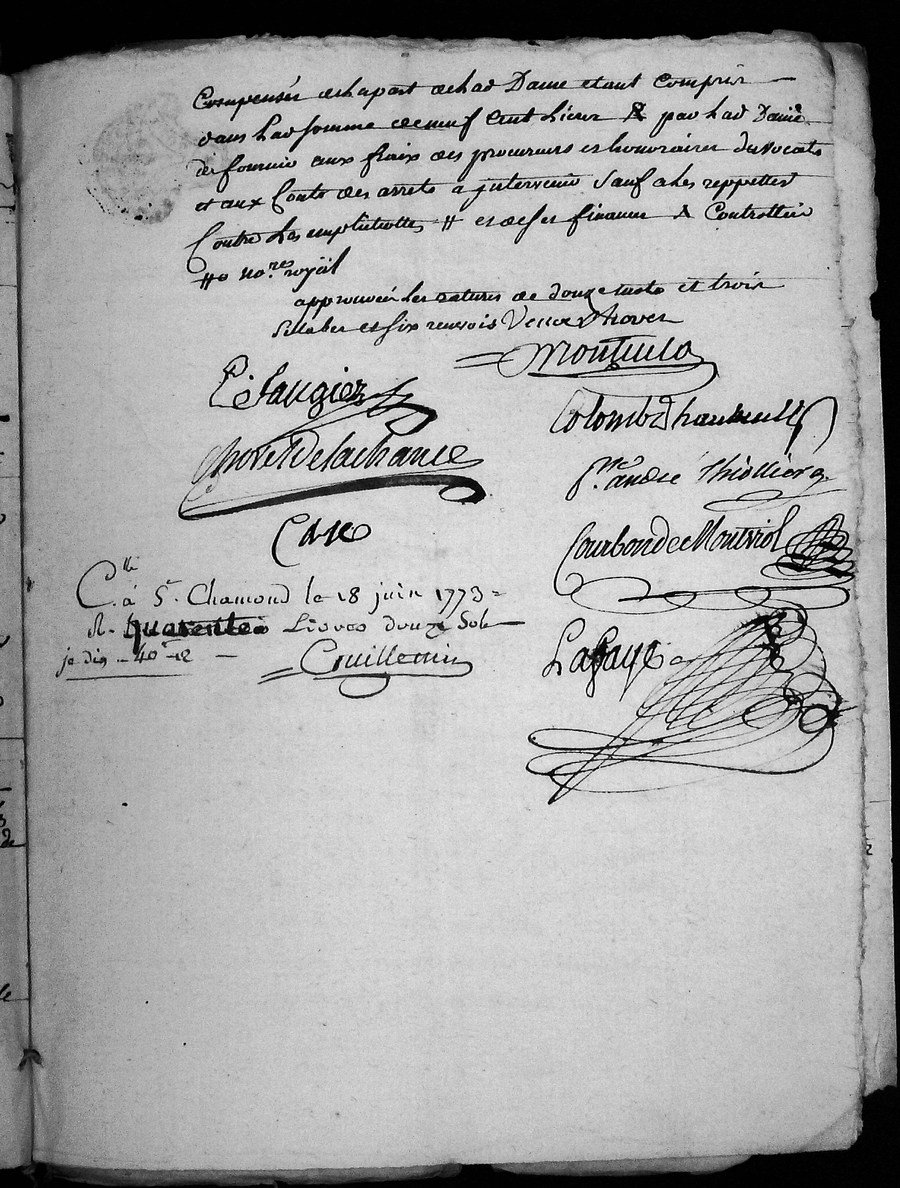 Compensés de la part de lad Dame etant Compris
dans lad somme de neuf Cent livres & par lad Dame
de fournir aux fraix des procureurs et honoraires davocats
et aux Couts des arrets a jntervenir Sauf a les reppetter
Contre les emphiteottes # et de ses finances & Controlleur
# no.res royal
approuvés les ratures de douze mots et trois
Sillabes et Six renvois
Montuclo
C. Faugier
Colomb d'hauteville
Chovet de la chance
p.re andré thiolliere
Courbon de Montviol
C.lle à S.t Chamond le 18 juin 1773 =
R. quarente Livres douze Sols
je dis - 40 - 12 -
Guillemin
Lafaye